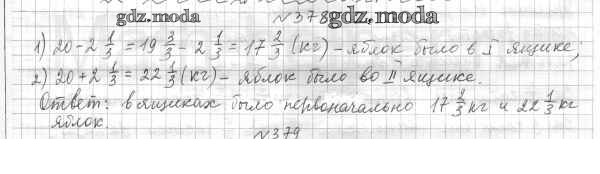 gdz.moda №378 gdz.moda
1) 20 - 2 1/3 = 19 3/3 - 2 1/3 = 17 2/3 (кг) - яблок было в I ящике;
2) 20 + 2 1/3 = 22 1/3 (кг) - яблок было во II ящике.
Ответ: в ящиках было первоначально 17 2/3 кг и 22 1/3 кг
яблок.
№379